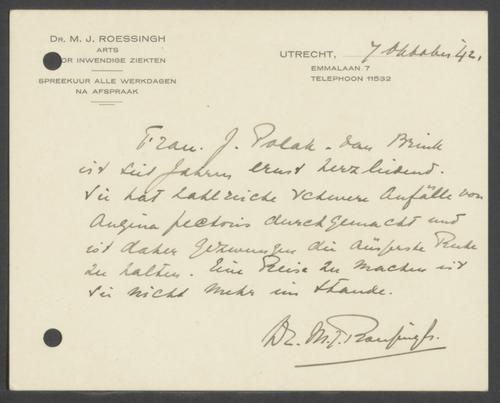 DR. M. J. ROESSINGH
ARTS
OR INWENDIGE ZIEKTEN
SPREEKUUR ALLE WERKDAGEN
NA AFSPRAAK
UTRECHT, 7 Oktober '42.
EMMALAAN 7
TELEPHOON 11532
Frau. J. Polak - van Brink
ist seit Jahren ernst herzleidend.
Sie hat zahlreiche schwere Anfälle von
Angina pectoris durchgemacht und
ist daher gezwungen die äuszerste Ruhe
zu halten. Eine Reise zu machen ist
sie nicht mehr im Stande.
Dr. M. J. Roessingh.